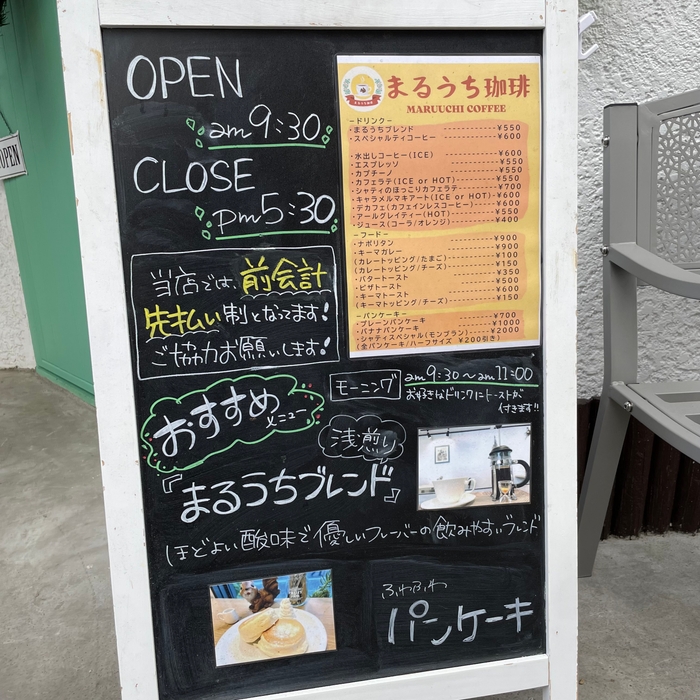 OPEN
am9:30
CLOSE
pm5:30
当店では、前会計
先払い制となってます!
ご協力お願いします!
まるうち珈琲
MARUUCHI COFFEE
-ドリンク-
・まるうちブレンド ¥550
・スペシャルティコーヒー ¥600
・水出しコーヒー(ICE) ¥600
・エスプレッソ ¥550
・カプチーノ ¥550
・カフェラテ(ICE or HOT) ¥550
・シャティのほっこりカフェラテ ¥700
・キャラメルマキアート(ICE or HOT) ¥600
・デカフェ(カフェインレスコーヒー) ¥600
・アールグレイティー(HOT) ¥550
・ジュース(コーラ/オレンジ) ¥400
-フード-
・ナポリタン ¥900
・キーマカレー ¥900
(カレートッピング/たまご) ¥100
(カレートッピング/チーズ) ¥150
・バタートースト ¥350
・ピザトースト ¥500
・キーマトースト ¥600
(キーマトッピング/チーズ) ¥150
-パンケーキ-
・プレーンパンケーキ ¥700
・バナナパンケーキ ¥1000
・シャティスペシャル(モンブラン) ¥2000
(全パンケーキ/ハーフサイズ ¥200引き)
モーニング am9:30~am11:00
お好きなドリンクにトーストが
付きます!!
おすすめメニュー
浅煎り
『まるうちブレンド』
ほどよい酸味で優しいフレーバーの飲みやすいブレンド
ふわふわ
パンケーキ
OPEN